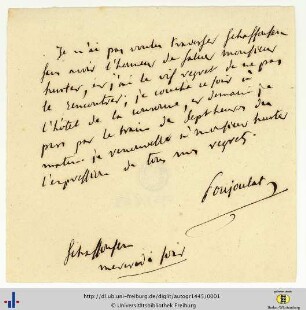 Je n'ai pas voulu traverser Schaffhusen
sans avoir l'honneur de saluer monsieur
hurter, et j'ai le vif regret de ne pas
le rencontrer; je couche ce soir à
l'hôtel de la couronne, et demain je
pars par le train de sept heures du
matin. je renouvelle à monsieur hurter
l'expression de tous mes regrets.
Poujoulat
Schaffhusen
mercredi soir
http://dl.ub.uni-freiburg.de/diglit/autogr1445/0001
© Universitätsbibliothek Freiburg